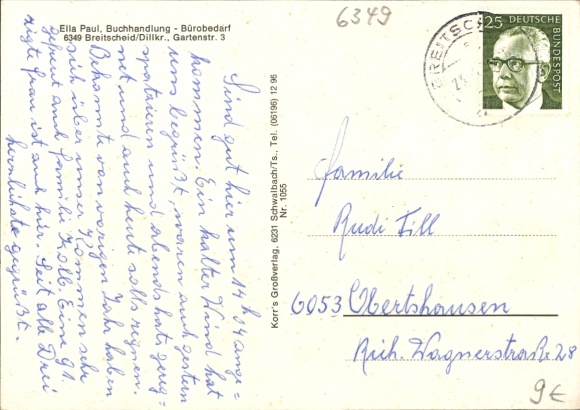 Ella Paul, Buchhandlung - Bürobedarf
6349 Breitscheid/Dillkr., Gartenstr. 3
6349
BREITSCH
25
DEUTSCHE
BUNDESPOST
Sind gut hier um 14 h 34 ange=
kommen. Ein kalter Wind hat
uns begrüßt, waren auch gestern
spazieren und abends hat gereg=
net und auch heute solls regnen.
Bekannte von vorigen Jahr haben
sich über unser Kommen sehr
gefreut auch Familie Kolb. Eine 91.
zigte Frau ist auch hier. Seit alle Drei
herzlichste gegrüßt.
Korr's Großverlag, 6231 Schwalbach/Ts., Tel. (06196) 12 96
Nr. 1055
Familie
Rudi Till
6053 Obertshausen
Rich. Wagnerstraße 28
9€